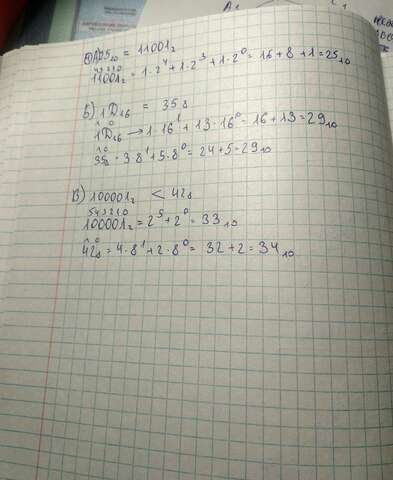 25₁₀ = 11001₂
4 3 2 1 0
11001₂ = 1·2⁴+1·2³+1·2⁰ = 16+8+1=25₁₀
Б) 1D₁₆ = 35₈
1 0
1D₁₆ → 1·16¹+13·16⁰=16+13=29₁₀
1 0
35₈ = 3·8¹+5·8⁰= 24+5=29₁₀
В) 100001₂ < 42₈
5 4 3 2 1 0
100001₂ = 2⁵+2⁰= 33₁₀
1 0
42₈ = 4·8¹+2·8⁰= 32+2=34₁₀